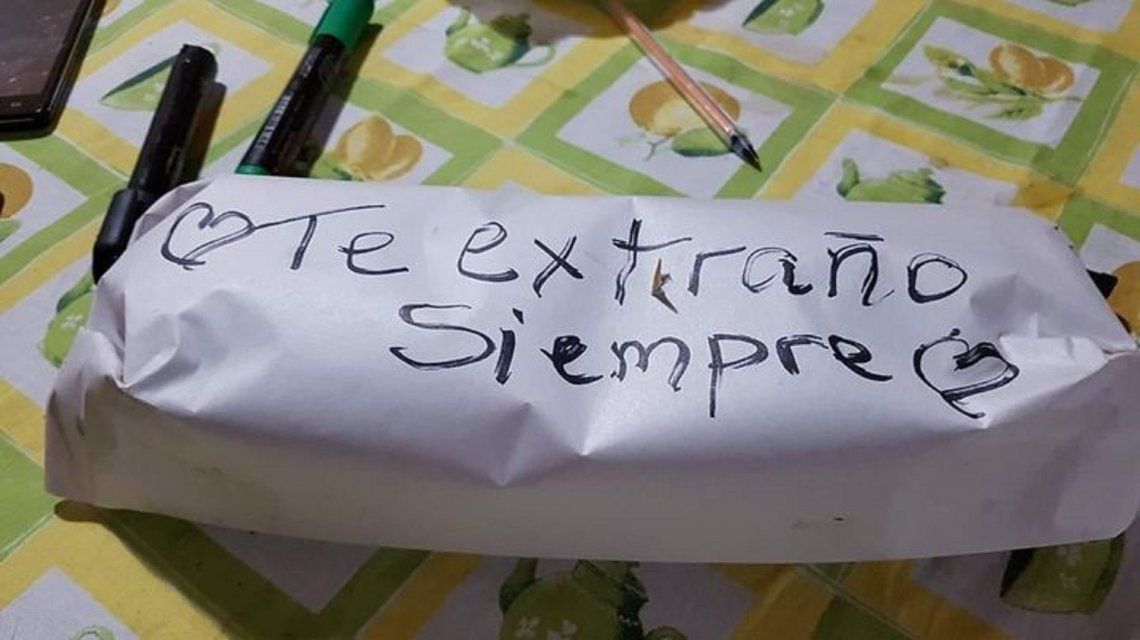 Te extraño
Siempre